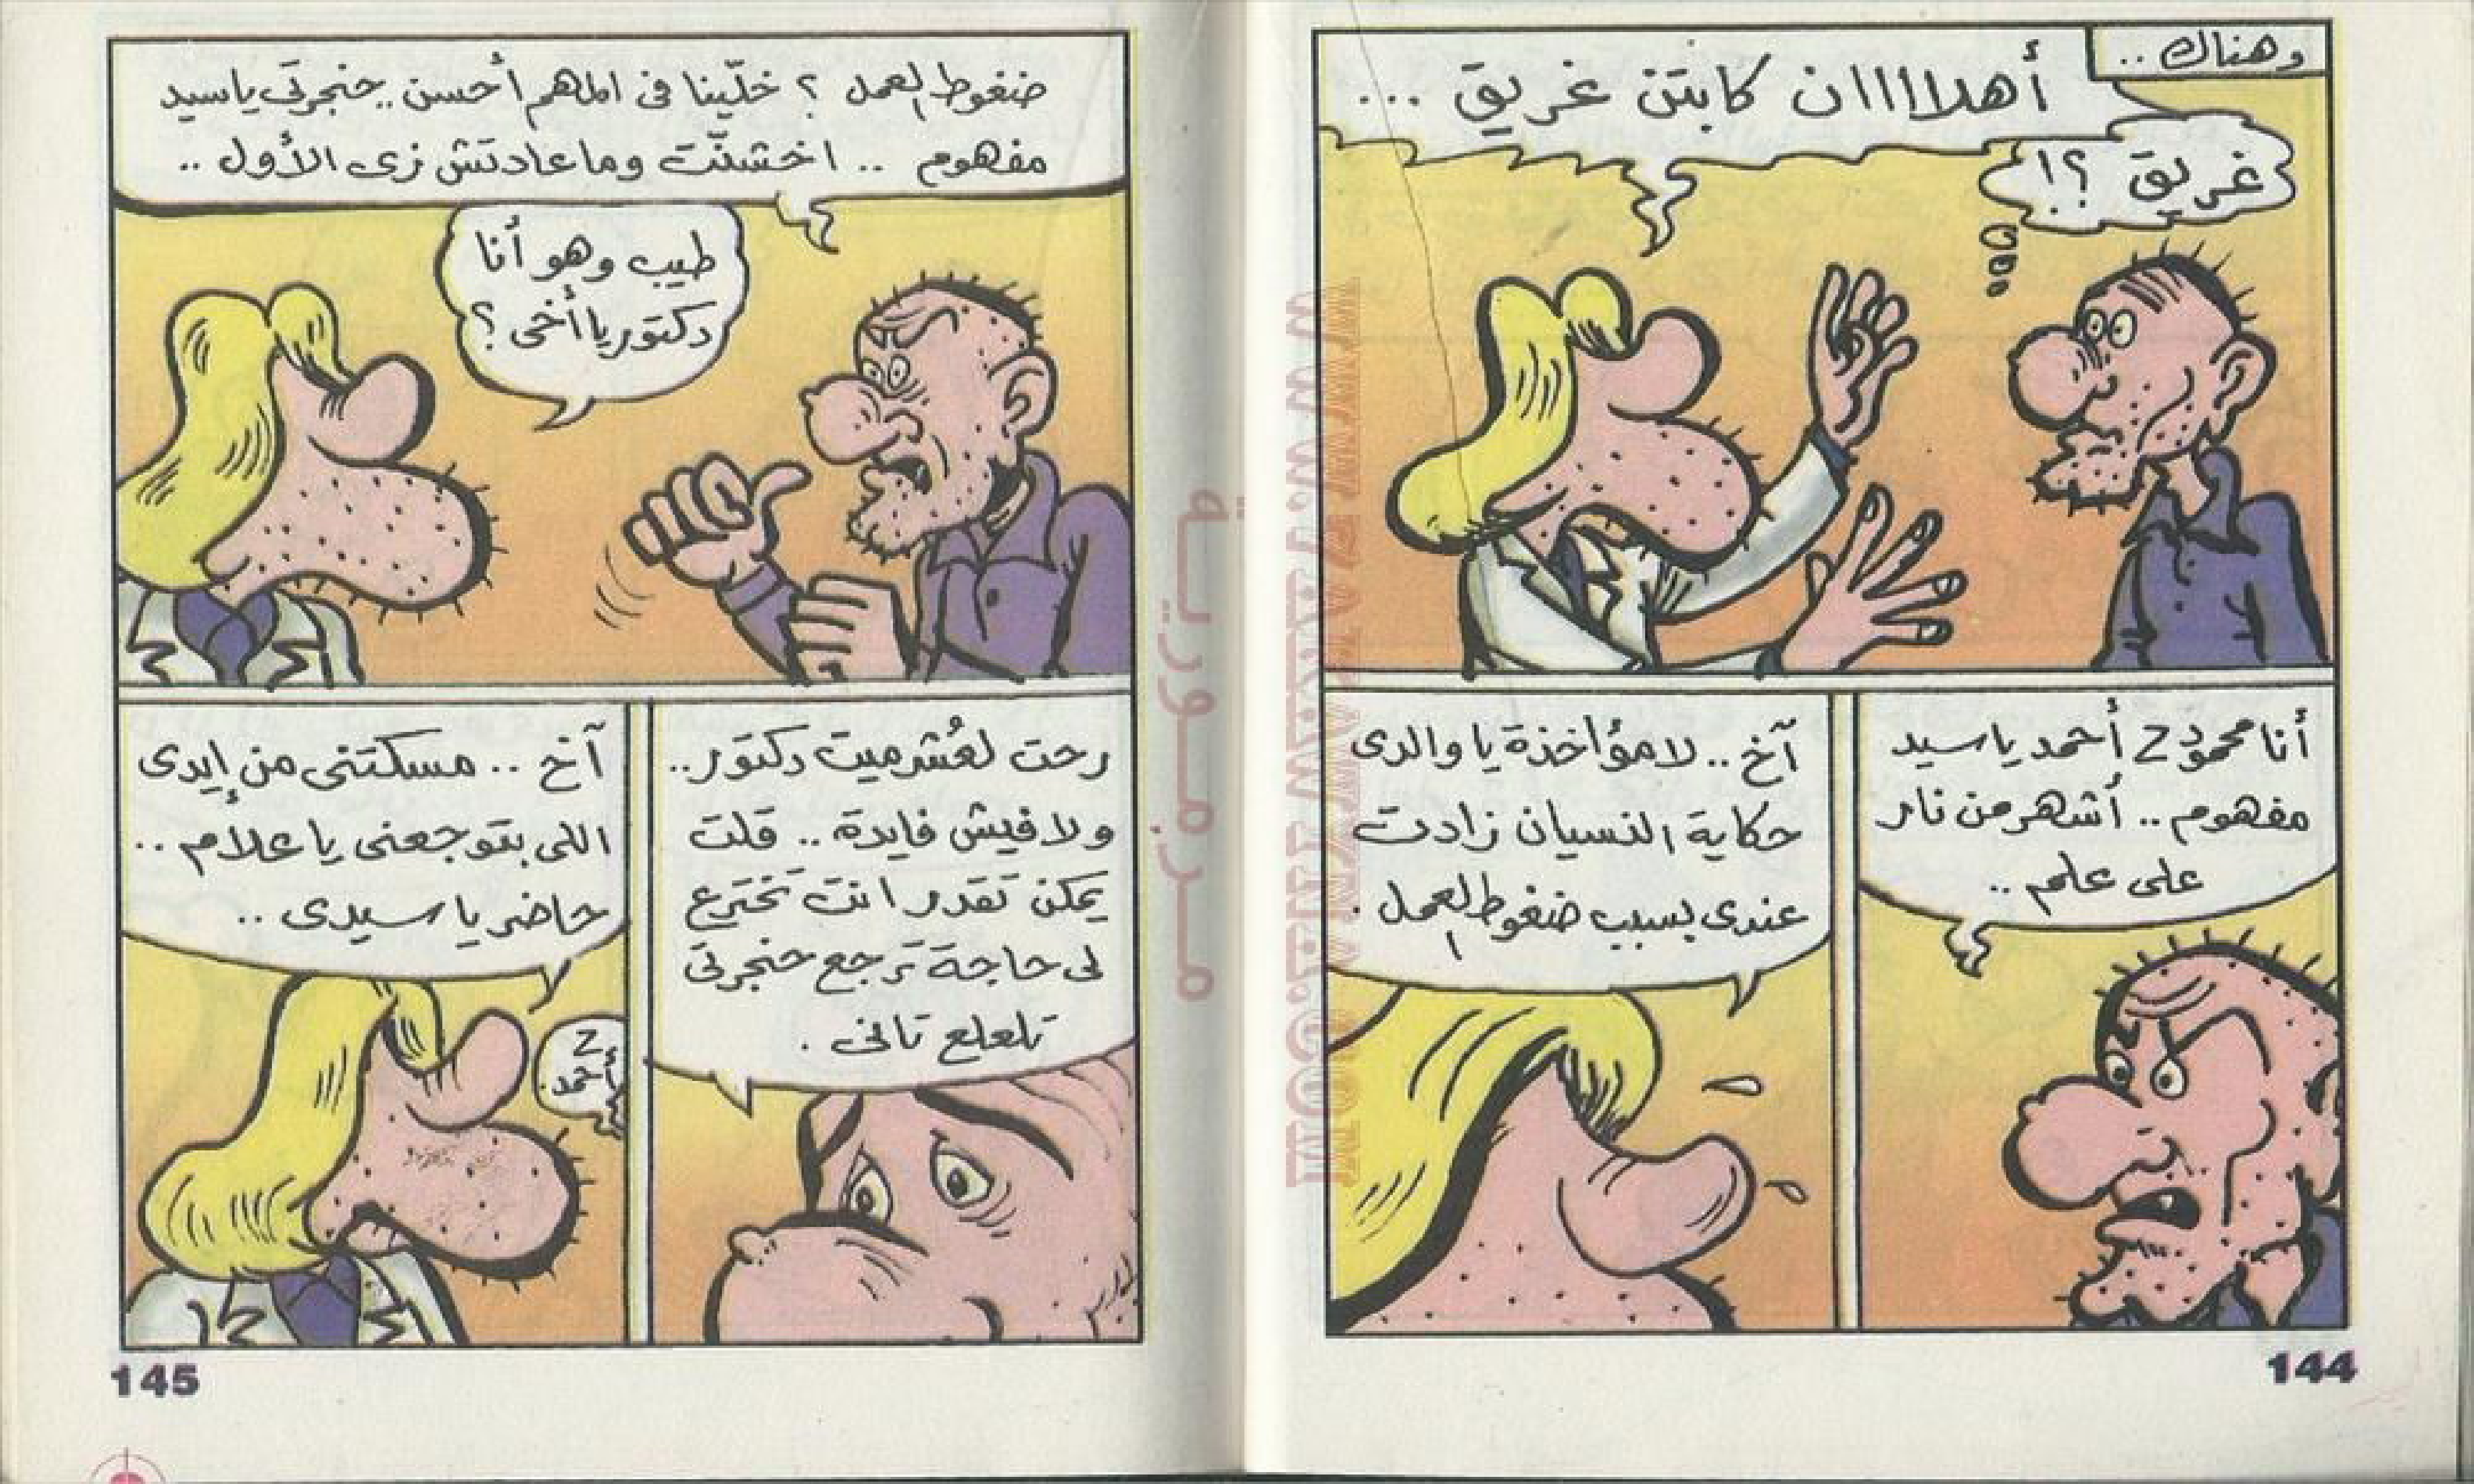 وهناك ..
أهلاااان كابتن غريق ...
غريق ؟!
أنا محمود z أحمد ياسيد
مفهوم .. أشهر من نار
على علم ..
آخ .. لا مؤاخذة يا والدى
حكاية النسيان زادت
عندى بسبب ضغوط العمل .
144
ضغوط العمل ؟ خلّينا فى المهم أحسن .. حنجرتى ياسيد
مفهوم .. اخشنّت وماعادتش زى الأول ..
طيب وهو أنا
دكتور يا أخى ؟
رحت لعُشرميت دكتور ..
ولا فيش فايدة .. قلت
يمكن تقدر انت تخترع
لى حاجة ترجع حنجرتى
تلعلع تانى .
آخ .. مسكتنى من إيدى
اللى بتوجعنى يا علام ..
حاضر يا سيدى ..
z
أحمد .
145